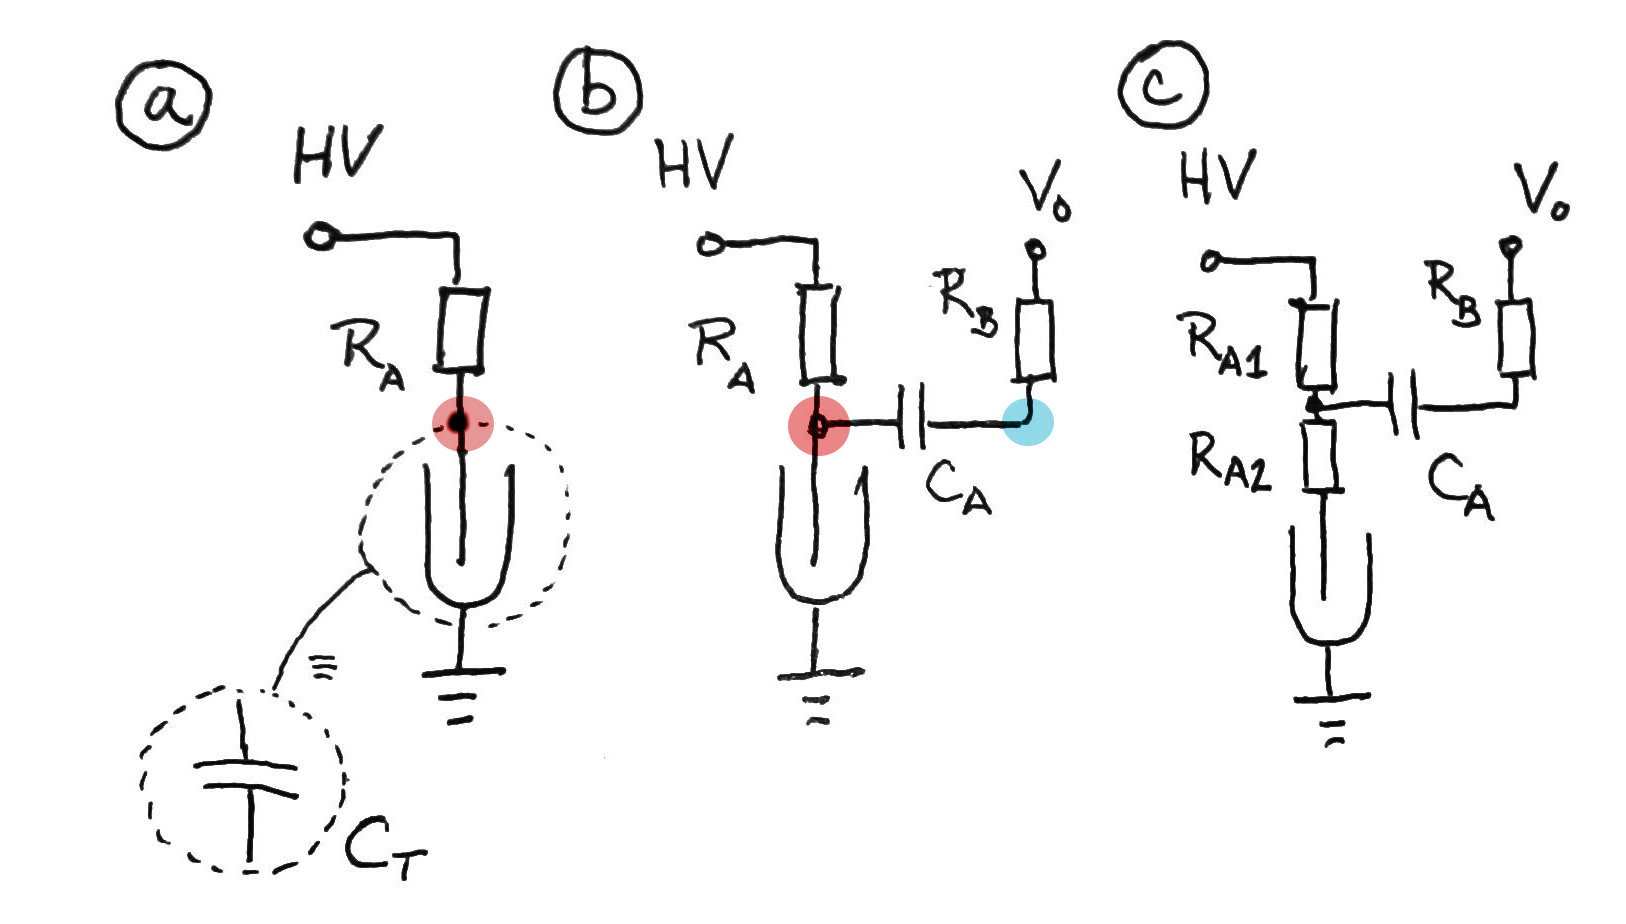 a
HV
R_A
≡
C_T
b
HV
V_0
R_A
R_B
C_A
c
HV
V_0
R_A1
R_B
R_A2
C_A